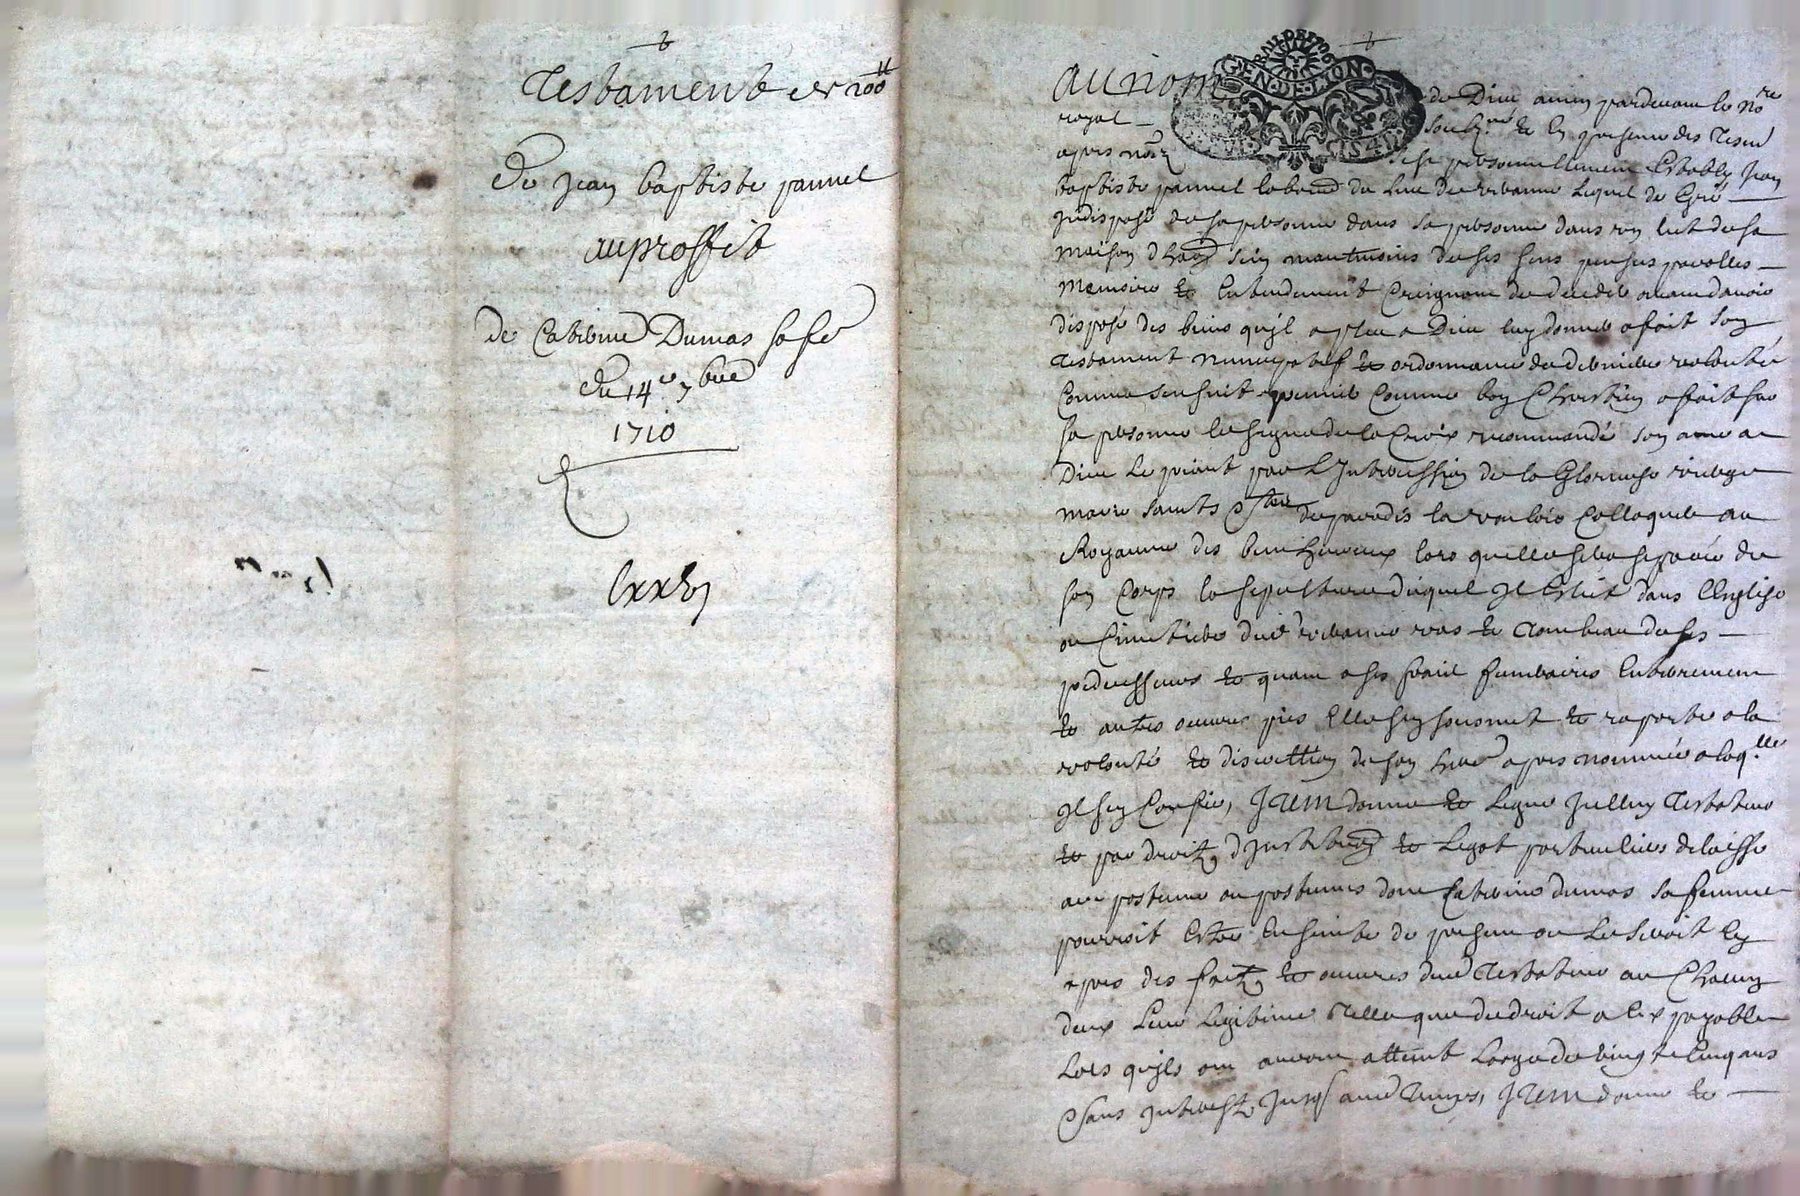 Testament de 200ll
de jean baptiste pannel
au proffit
de Catherine Dumas sa fe
du 14e 7bre
1710
lxxvj
GEN·DE·LION
au nom de Dieu amen pardevant le nore
royal soubzne et en presence des tesm
apres nomz sest personnellement Estably Jean
baptiste pannel lequel de gré
Indisposé de sa personne dans sa personne dans son lict de sa
maison d sain mantmoins de ses sens parolles
memoire et Entendement Creignant de decedé avant davoir
disposé des biens quil a pleu a Dieu luy donner a fait son
testament nuncupatif et ordonnance de derniere volonté
Comme sensuit premier Comme bon Chrestien a fait sur
sa personne le signe de la Croix recommandé son ame a
Dieu Le priant par L Intercession de la Glorieuse vierge
marie saincts et stes de paradis la vouloir Colloquer au
Royaume des bien heureux lors quelle sera separée de
son Corps la sepulture duquel Il Eslit dans l'Esglise
ou Cimetiere dud et tombeau de ses
predecesseurs et quant a ses frais funeraires Enterrement
et autres oeuvres pies Elle sen soubmet et raporte a la
volonté et discrettion de son here apres nommée a laqlle
Il sen Confie, Item donne et Legue Icelluy testateur
et par droit d Instituon et Legat particulier delaisse
au postume ou postumes dont Catherine dumas sa femme
pourroit Estre Enceinte de present ou Le seroit cy
apres des faitz et oeuvres dud testateur a Chacun
deux Leur Legitime telle que de droit a Eux payable
Lors quils ont auront atteint Laage de vingt Cinq ans
sans Interestz Jusq aud temps, Item donne et